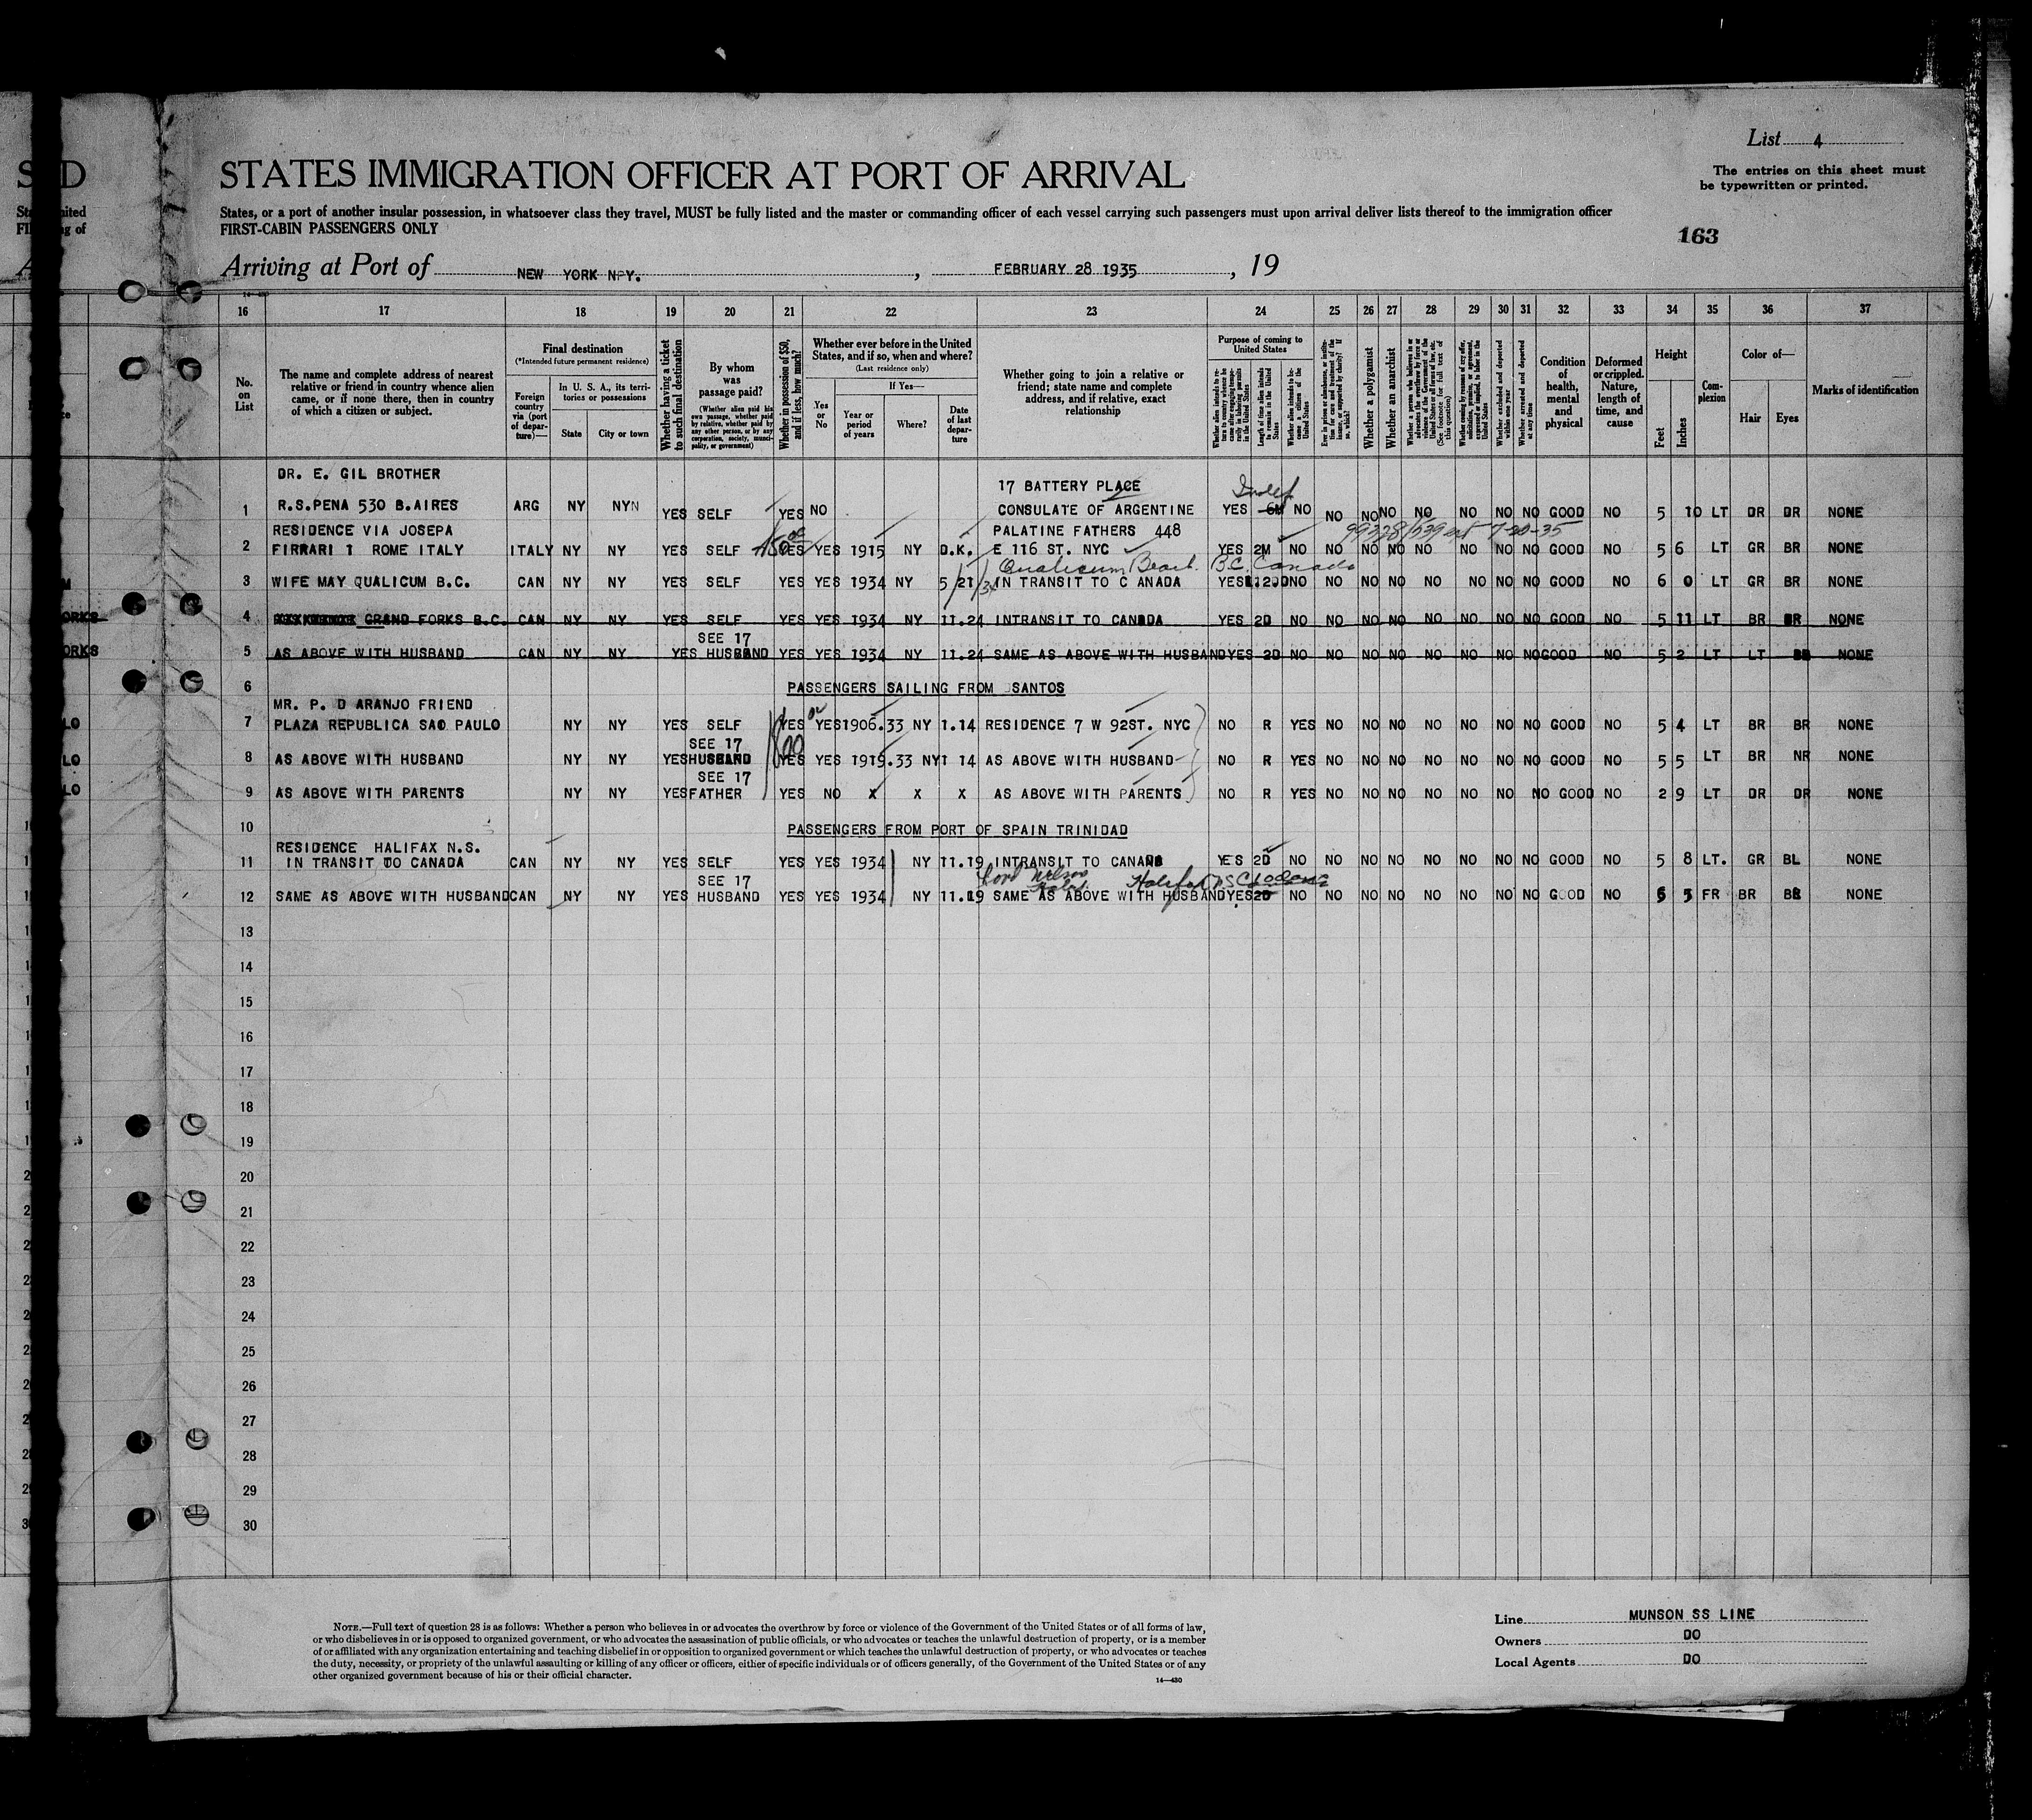 List 4
The entries on this sheet must
be typewritten or printed.
STATES IMMIGRATION OFFICER AT PORT OF ARRIVAL
States, or a port of another insular possession, in whatsoever class they travel, MUST be fully listed and the master or commanding officer of each vessel carrying such passengers must upon arrival deliver lists thereof to the immigration officer
FIRST-CABIN PASSENGERS ONLY
163
Arriving at Port of NEW YORK NPY. , FEBRUARY 28 1935 , 19
16 17 18 19 20 21 22 23 24 25 26 27 28 29 30 31 32 33 34 35 36 37
No. on List
The name and complete address of nearest relative or friend in country whence alien came, or if none there, then in country of which a citizen or subject.
Final destination
(*Intended future permanent residence)
Foreign country via (port of departure)—
In U. S. A., its territories or possessions
State
City or town
Whether having a ticket to such final destination
By whom was passage paid?
(Whether alien paid his own passage, whether paid by relative, whether paid by any other person, or by any corporation, society, municipality, or government)
Whether in possession of $50, and if less, how much?
Whether ever before in the United States, and if so, when and where?
(Last residence only)
Yes or No
If Yes—
Year or period of years
Where?
Date of last departure
Whether going to join a relative or friend; state name and complete address, and if relative, exact relationship
Purpose of coming to United States
Length of time alien intends to remain in the United States
Whether alien intends to become a citizen of the United States
Whether a polygamist
Whether an anarchist
Whether arrested and deported at any time
Condition of health, mental and physical
Deformed or crippled. Nature, length of time, and cause
Height
Feet
Inches
Complexion
Color of—
Hair
Eyes
Marks of identification
DR. E. GIL BROTHER 17 BATTERY PLACE Indef
1 R.S.PENA 530 B.AIRES ARG NY NYN YES SELF YES NO CONSULATE OF ARGENTINE YES 6M NO NO NO NO NO NO NO NO GOOD NO 5 10 LT DR DR NONE
RESIDENCE VIA JOSEPA PALATINE FATHERS 448
2 FIRRARI 1 ROME ITALY ITALY NY NY YES SELF YES YES 1915 NY D.K. E 116 ST. NYC YES 2M NO NO NO NO NO NO NO NO GOOD NO 5 6 LT GR BR NONE
Qualicum Beach. B.C. Canada
3 WIFE MAY QUALICUM B.C. CAN NY NY YES SELF YES YES 1934 NY 5/21/34 IN TRANSIT TO C ANADA YES NO NO NO NO NO NO NO NO GOOD NO 6 0 LT GR BR NONE
4 GRAND FORKS B.C. CAN NY NY YES SELF YES YES 1934 NY 11.24 INTRANSIT TO CANADA YES 2D NO NO NO NO NO NO NO NO GOOD NO 5 11 LT BR BR NONE
SEE 17
5 AS ABOVE WITH HUSBAND CAN NY NY YES HUSBAND YES YES 1934 NY 11.24 SAME AS ABOVE WITH HUSBAND YES 2D NO NO NO NO NO NO NO NO GOOD NO 5 2 LT LT BR NONE
6 PASSENGERS SAILING FROM SANTOS
MR. P. D ARANJO FRIEND
7 PLAZA REPUBLICA SAO PAULO NY NY YES SELF YES YES 1906.33 NY 1.14 RESIDENCE 7 W 92ST. NYC NO R YES NO NO NO NO NO NO NO GOOD NO 5 4 LT BR BR NONE
SEE 17
8 AS ABOVE WITH HUSBAND NY NY YES HUSBAND YES YES 1919.33 NY 1 14 AS ABOVE WITH HUSBAND NO R YES NO NO NO NO NO NO NO GOOD NO 5 5 LT BR NR NONE
SEE 17
9 AS ABOVE WITH PARENTS NY NY YES FATHER YES NO X X X AS ABOVE WITH PARENTS NO R YES NO NO NO NO NO NO NO GOOD NO 2 9 LT DR DR NONE
10 PASSENGERS FROM PORT OF SPAIN TRINIDAD
RESIDENCE HALIFAX N.S.
11 IN TRANSIT TO CANADA CAN NY NY YES SELF YES YES 1934 NY 11.19 INTRANSIT TO CANADA YES 2D NO NO NO NO NO NO NO NO GOOD NO 5 8 LT. GR BL NONE
SEE 17 Lord Nelson Hotel Halifax NS
12 SAME AS ABOVE WITH HUSBAND CAN NY NY YES HUSBAND YES YES 1934 NY 11.19 SAME AS ABOVE WITH HUSBAND YES 2D NO NO NO NO NO NO NO NO GOOD NO 5 5 FR BR BR NONE
13
14
15
16
17
18
19
20
21
22
23
24
25
26
27
28
29
30
NOTE.—Full text of question 28 is as follows: Whether a person who believes in or advocates the overthrow by force or violence of the Government of the United States or of all forms of law,
or who disbelieves in or is opposed to organized government, or who advocates the assassination of public officials, or who advocates or teaches the unlawful destruction of property, or is a member
of or affiliated with any organization entertaining and teaching disbelief in or opposition to organized government or which teaches the unlawful destruction of property, or who advocates or teaches
the duty, necessity, or propriety of the unlawful assaulting or killing of any officer or officers, either of specific individuals or of officers generally, of the Government of the United States or of any
other organized government because of his or their official character.
14—430
Line MUNSON SS LINE
Owners DO
Local Agents DO